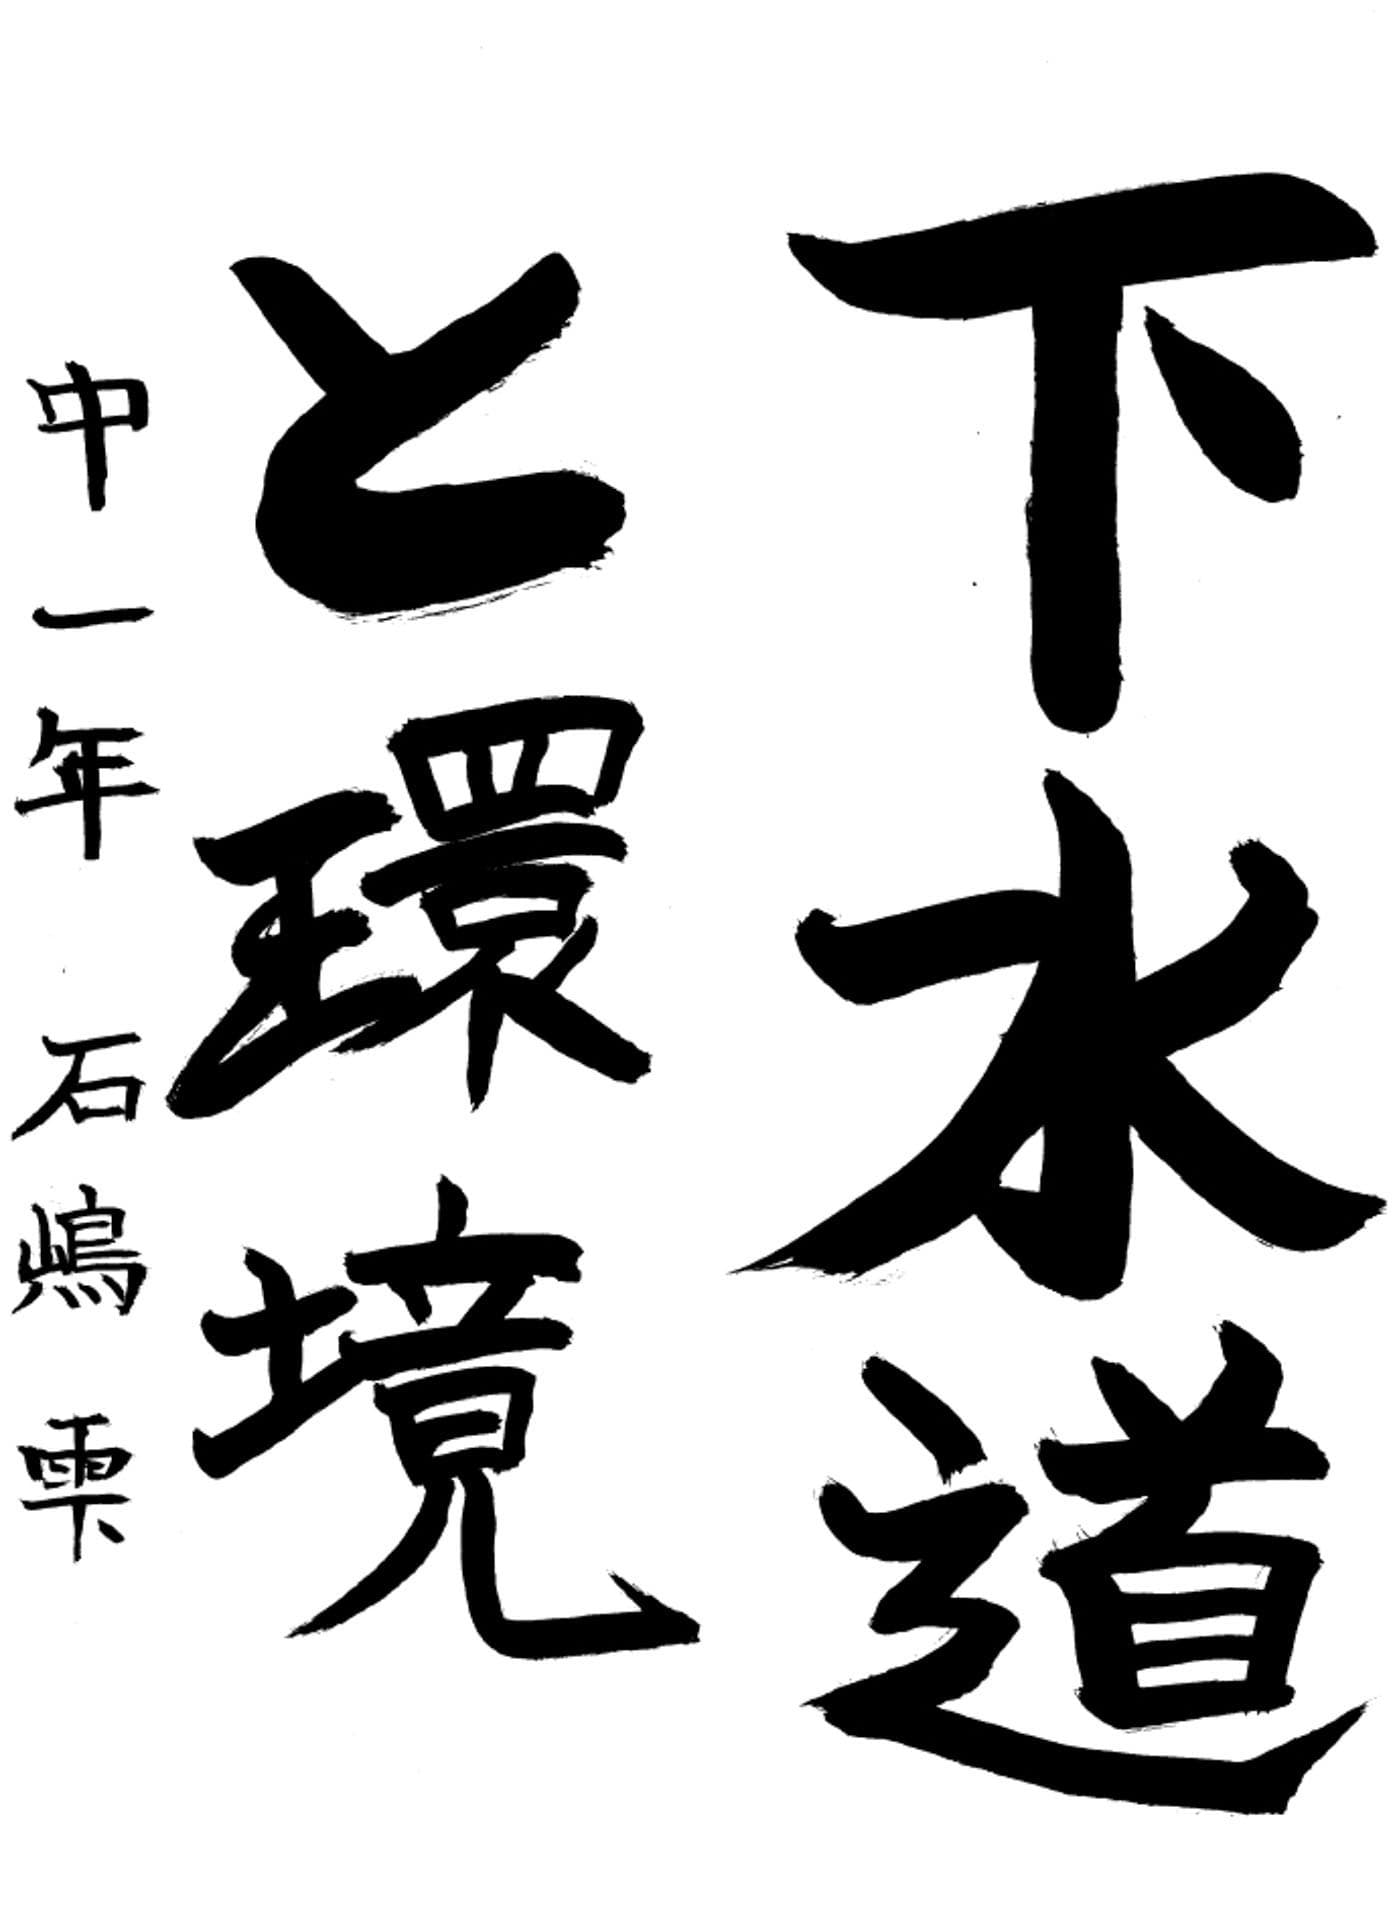 下水道
と環境
中一年 石嶋 雫